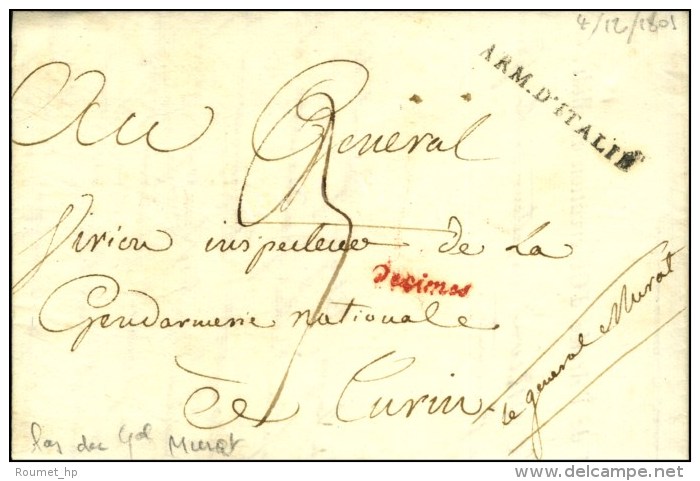 4/12/1801
ARM. D'ITALIE
Au Général
3
Virion inspecteur de la
decimes
Gendarmerie nationale
le general Murat
à Turin
las du Gal Murat
Roumet_hp
©delcampe.net